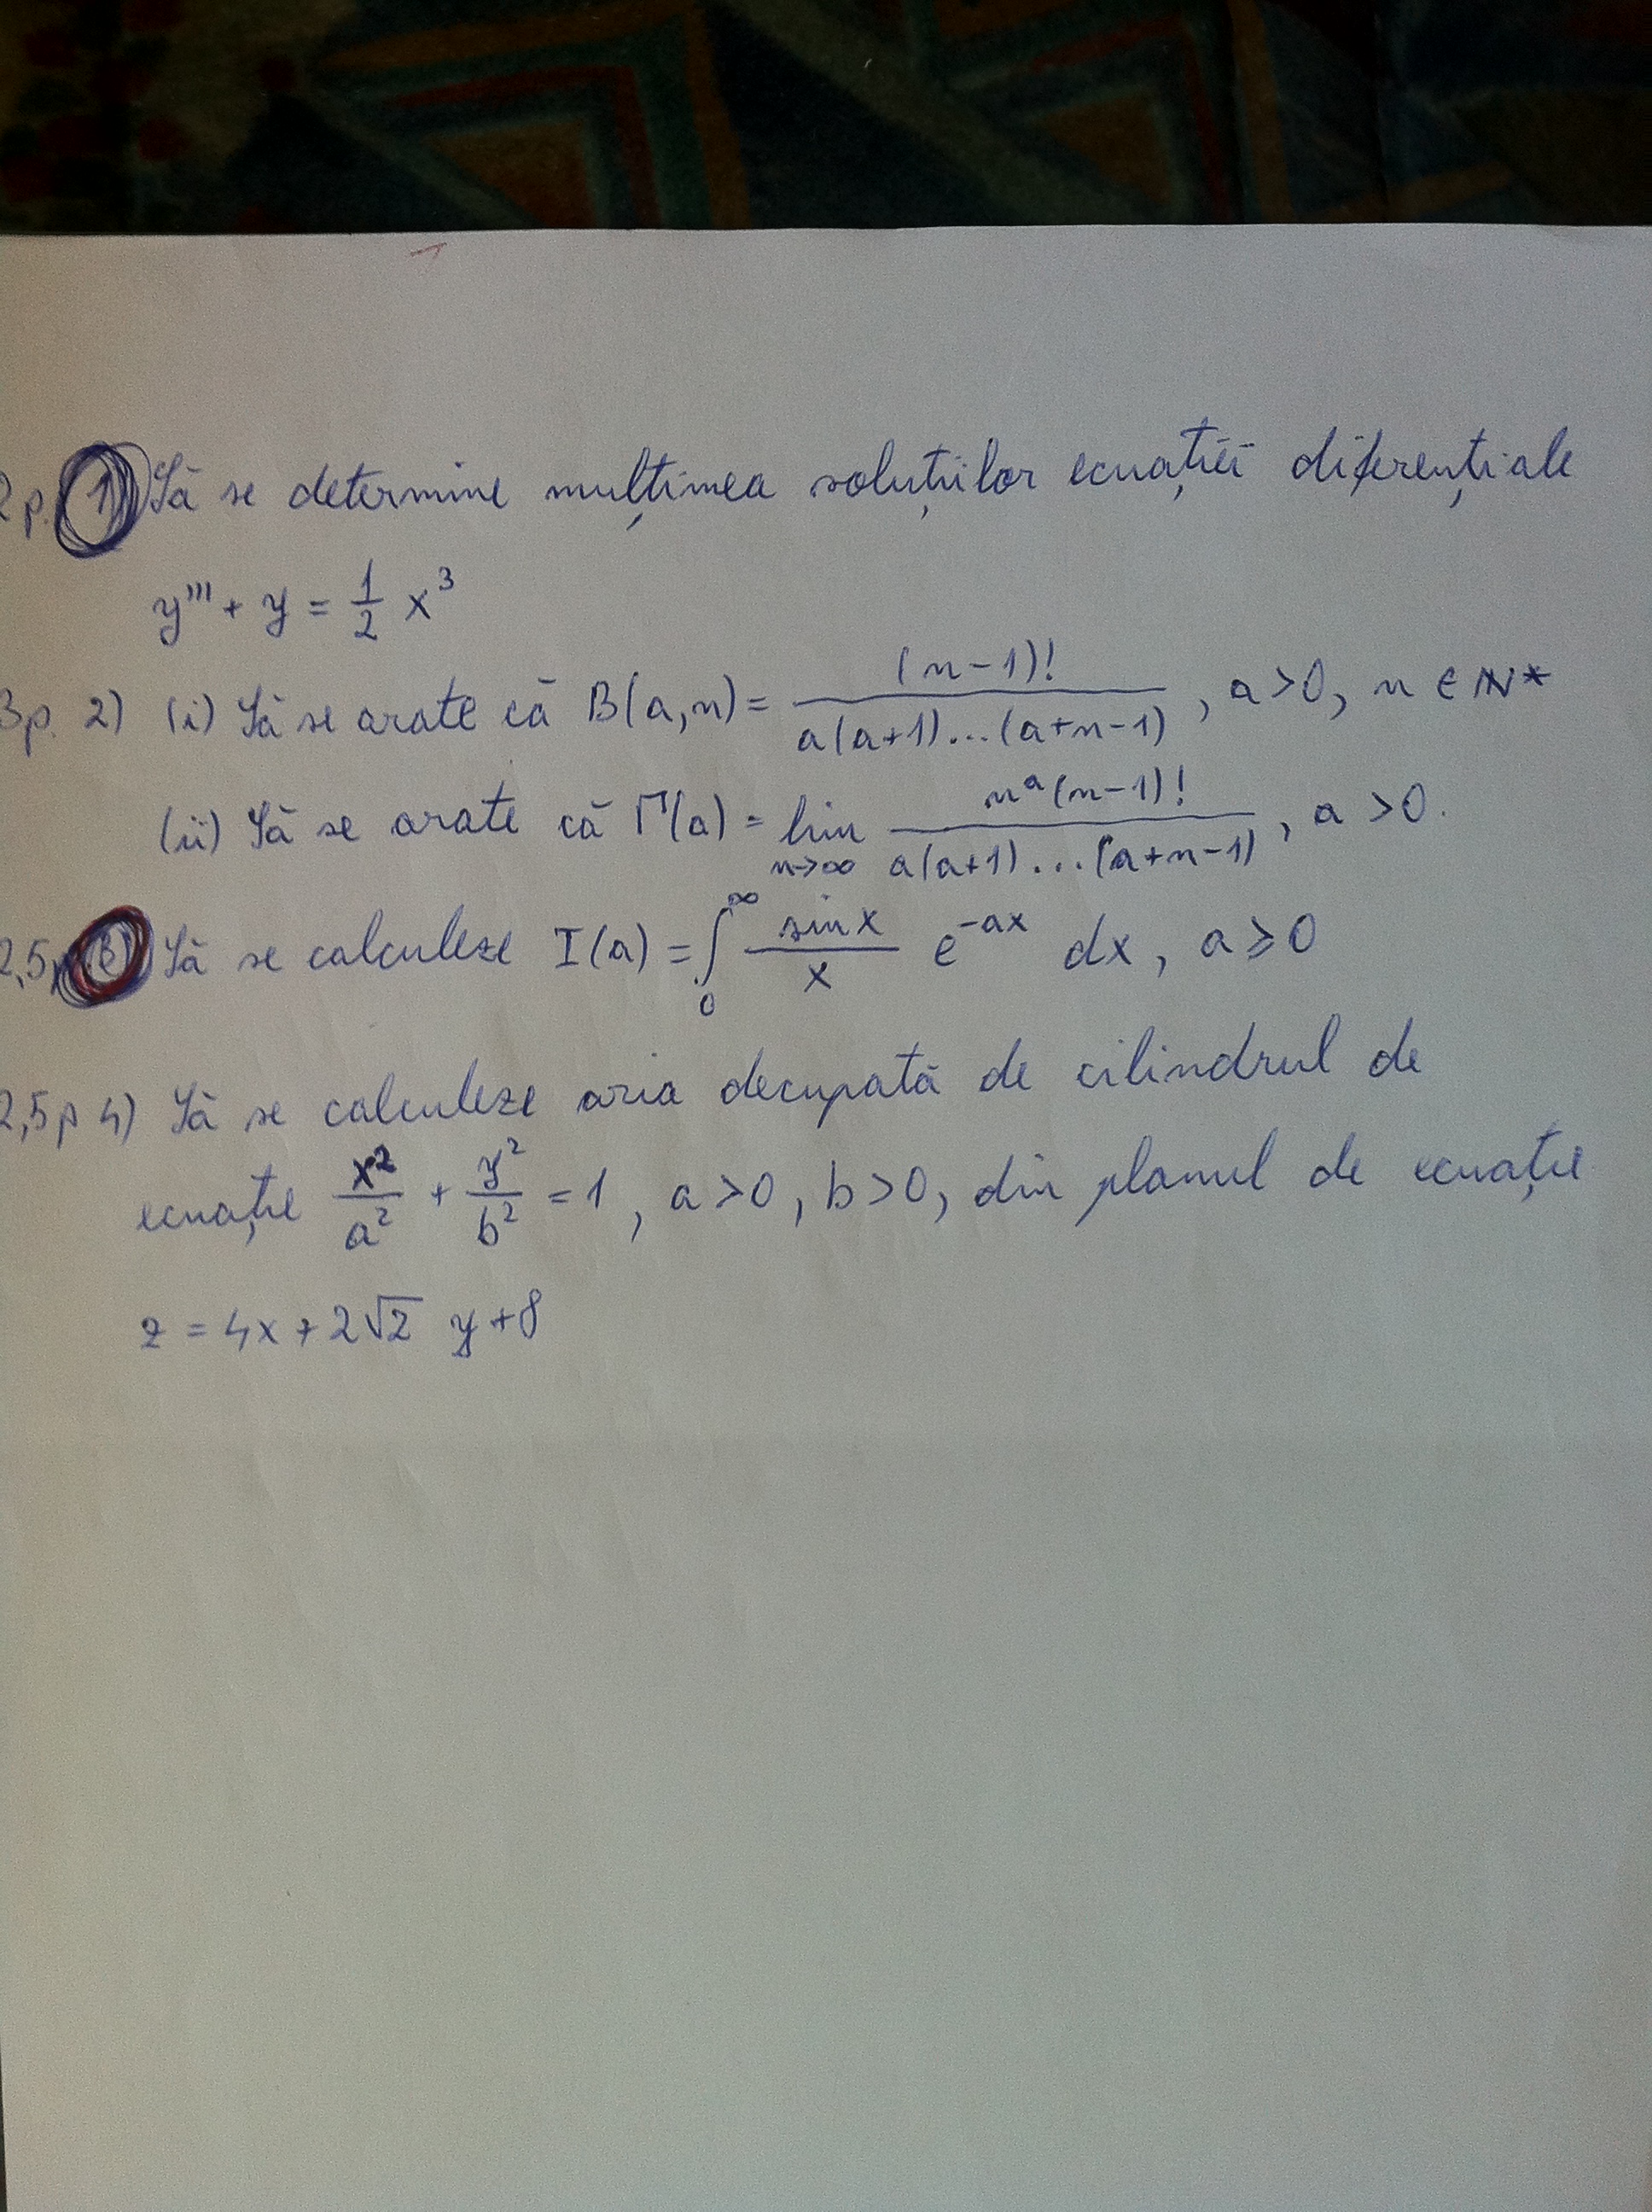 2p. 1) Să se determine mulțimea soluțiilor ecuației diferențiale
y''' + y = 1/2 x³
3p. 2) (i) Să se arate că B(a,n) = (n-1)! / a(a+1)...(a+n-1), a>0, n∈ℕ*
(ii) Să se arate că Γ(a) = lim n→∞ nᵃ(n-1)! / a(a+1)...(a+n-1), a>0.
2,5p 3) Să se calculeze I(a) = ∫₀^∞ sinx/x e^(-ax) dx, a≥0
2,5p 4) Să se calculeze aria decupată de cilindrul de
ecuație x²/a² + y²/b² = 1, a>0, b>0, din planul de ecuație
z = 4x+2√2 y+8